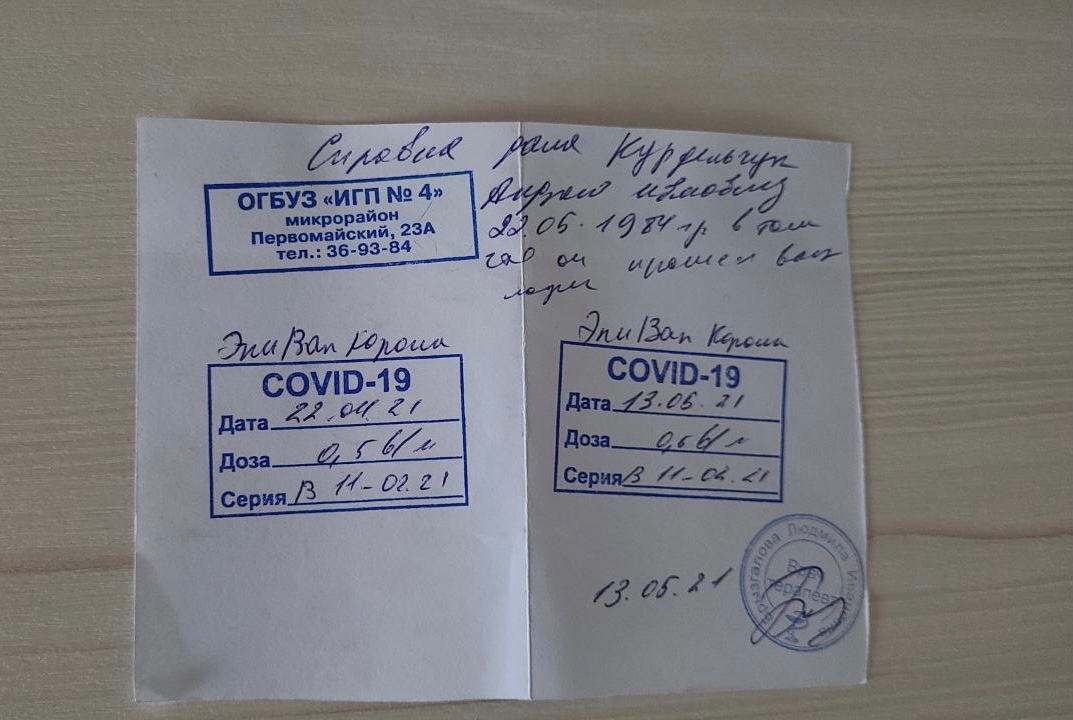 Справка дана Курдельчук
ОГБУЗ «ИГП № 4»
микрорайон
Первомайский, 23А
тел.: 36-93-84
Андрею
22.05.1984 гр в том
что он прошел вак
ЭпиВак Корона
COVID-19
Дата 22.04.21
Доза 0,5 в/м
Серия В 11-02.21
ЭпиВак Корона
COVID-19
Дата 13.05.21
Доза 0,5 в/м
Серия В 11-02.21
13.05.21
Людмила
Врач
Терапевт